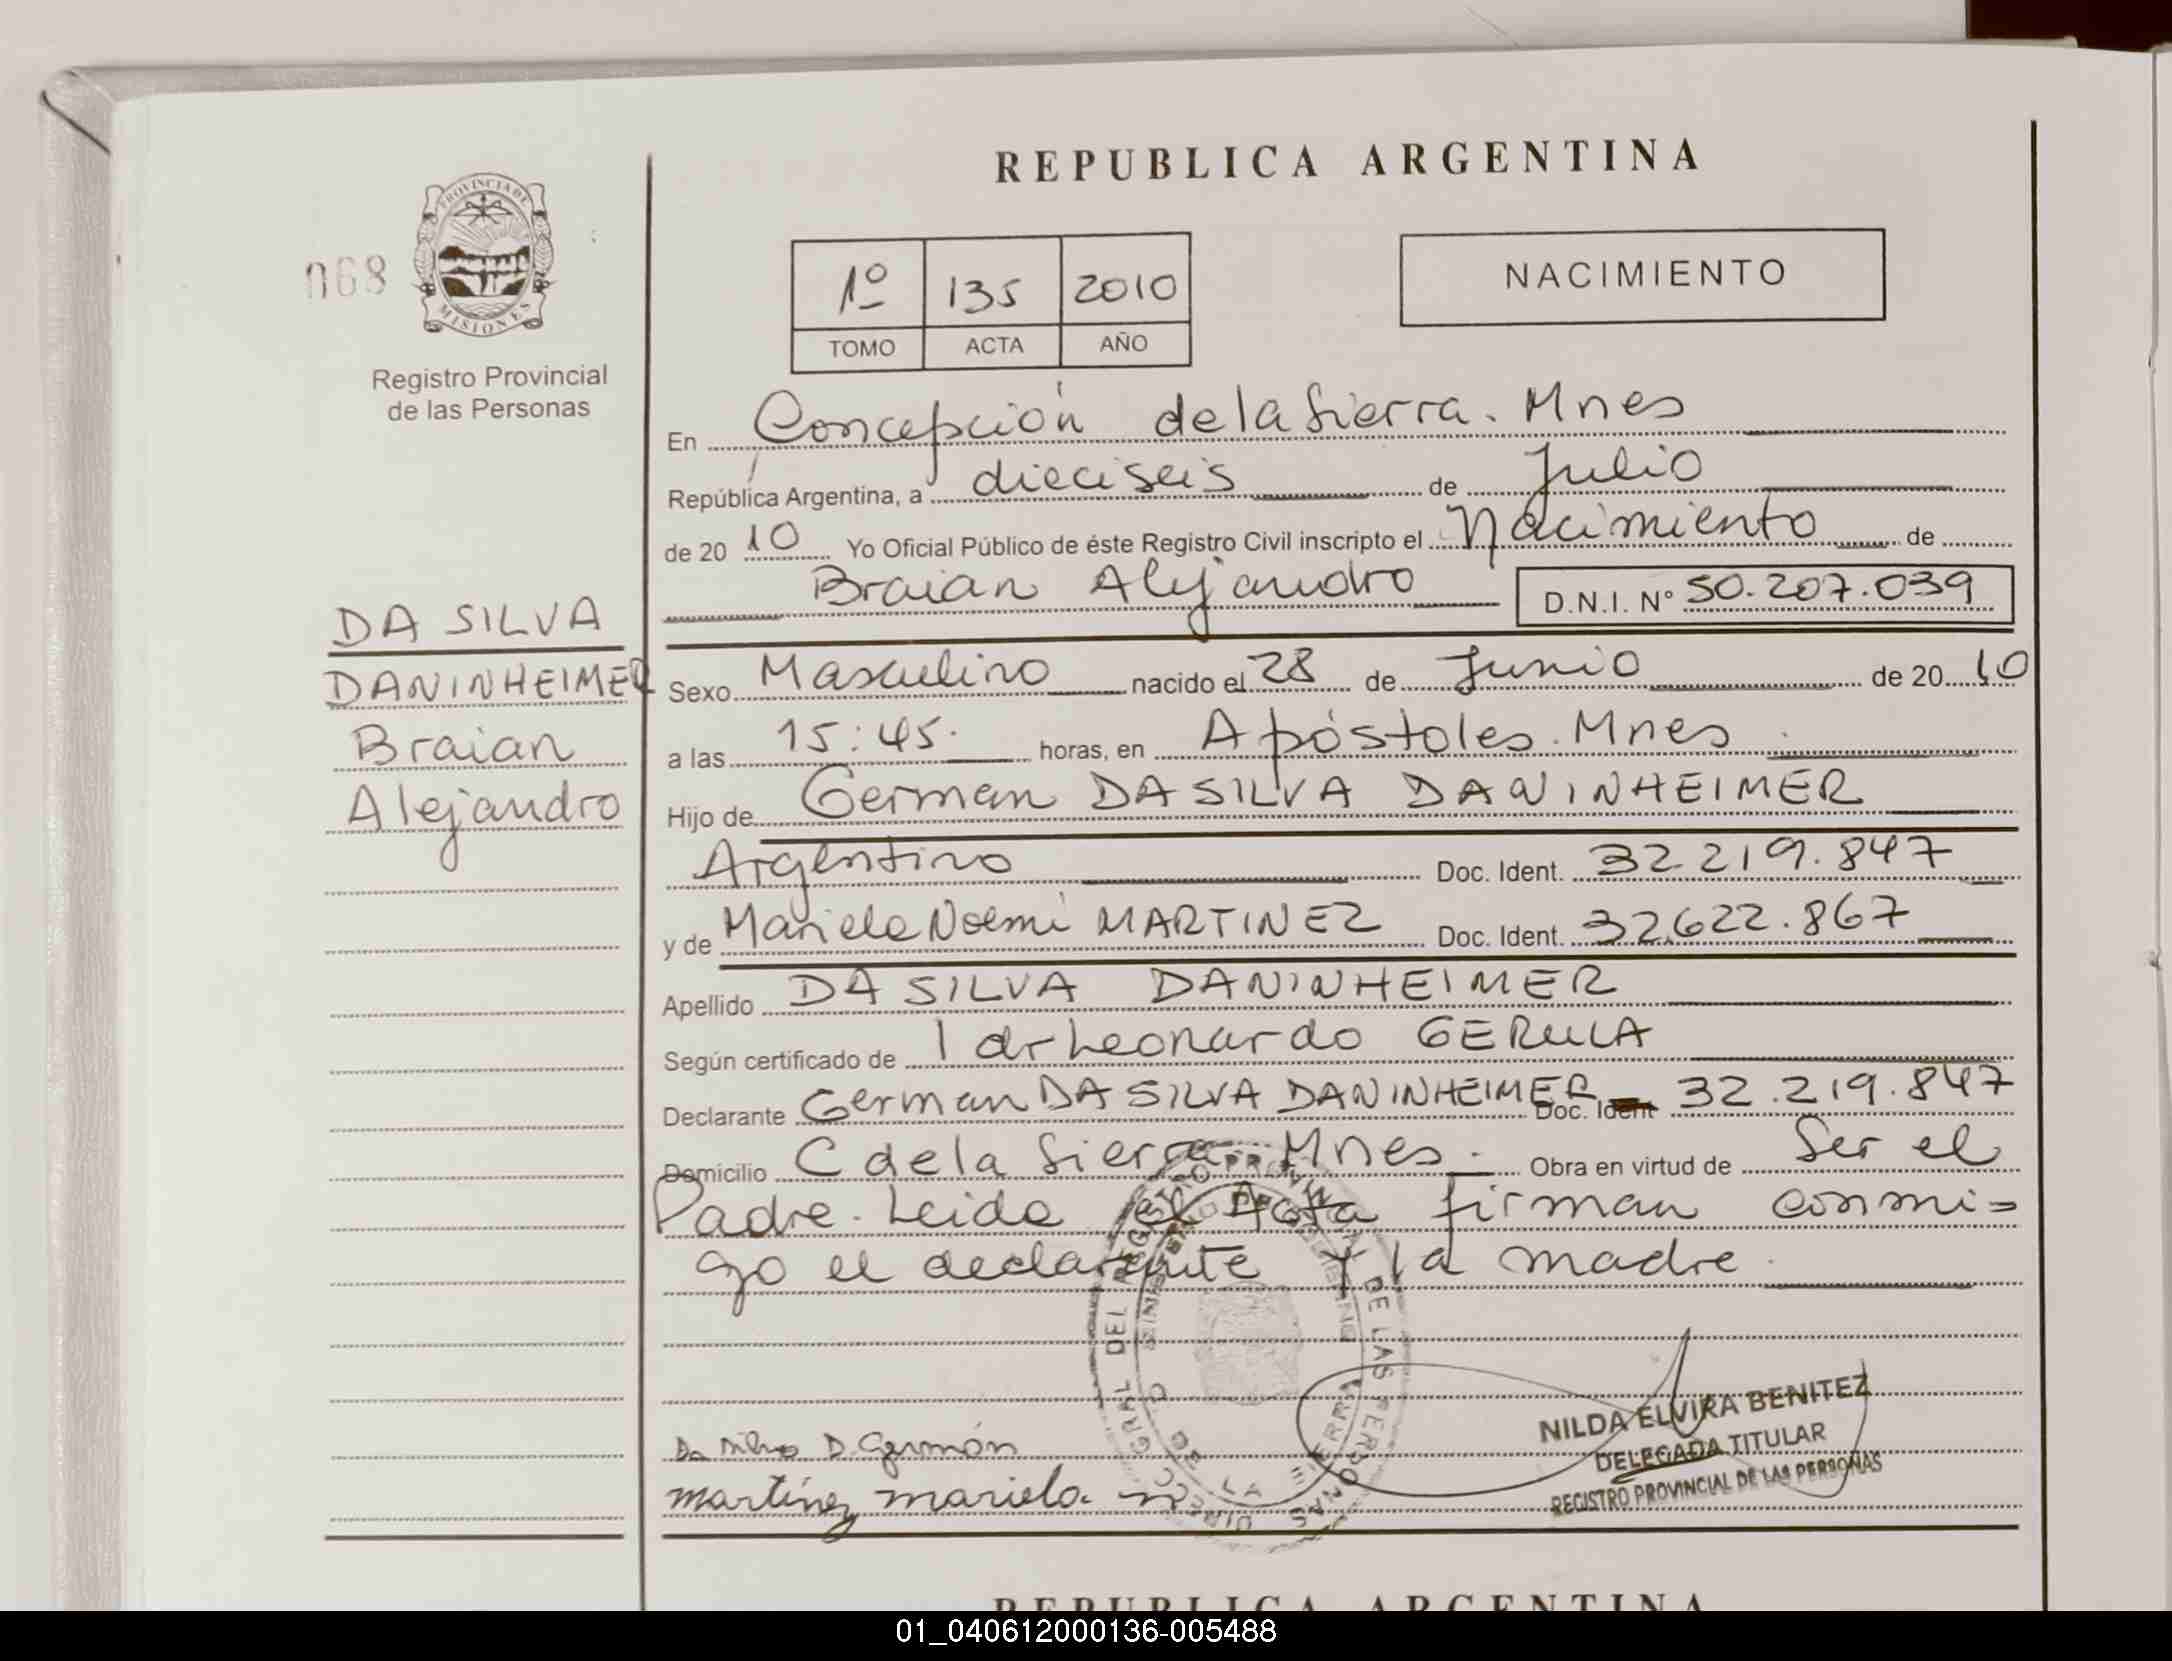 REPUBLICA ARGENTINA
068
PROVINCIA DE
MISIONES
Registro Provincial
de las Personas
1º 135 2010
TOMO ACTA AÑO
NACIMIENTO
DA SILVA
DANINHEIMER
Braian
Alejandro
En Concepción de la Sierra. Mnes
República Argentina, a dieciseis de Julio
de 20 10 Yo Oficial Público de éste Registro Civil inscripto el Nacimiento de
Braian Alejandro D.N.I. Nº 50.207.039
Sexo Masculino nacido el 28 de Junio de 20 10
a las 15:45. horas, en Apóstoles. Mnes.
Hijo de German DA SILVA DANINHEIMER
Argentino Doc. Ident. 32.219.847
y de Mariela Noemí MARTINEZ Doc. Ident. 32.622.867
Apellido DA SILVA DANINHEIMER
Según certificado de 1 dr Leonardo GERULA
Declarante German DA SILVA DANINHEIMER Doc. Ident 32.219.847
Domicilio C de la Sierra. Mnes. Obra en virtud de Ser el
Padre. Leida el Acta firman conmi=
go el declarante y la madre.
Da Silva D. Germán
martínez mariela. n
DIRECC. GRAL DEL REGISTRO PROVINCIAL DE LAS PERSONAS
C. DE LA SIERRA
NILDA ELVIRA BENITEZ
DELEGADA TITULAR
REGISTRO PROVINCIAL DE LAS PERSONAS
REPUBLICA ARGENTINA
01_040612000136-005488